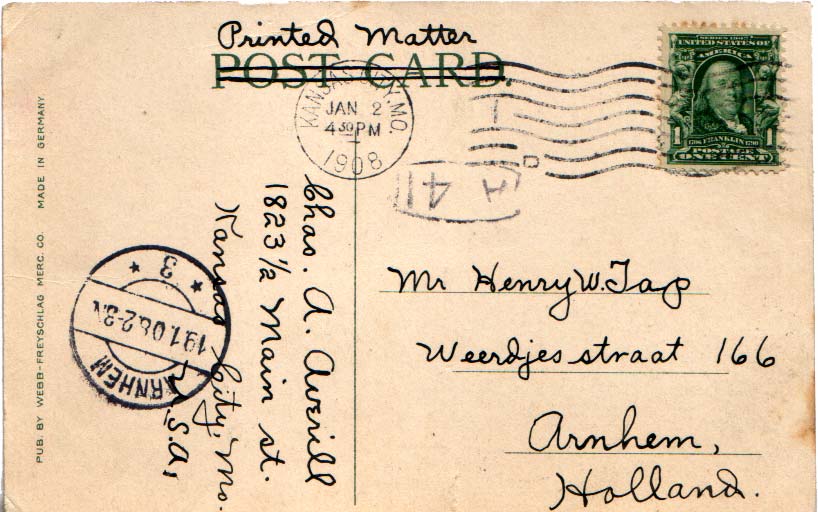 Printed Matter
POST CARD.
KANSAS CITY, MO.
JAN 2
4 30 PM
1908
SERIES 1902
UNITED STATES OF
AMERICA
1 1
1706 FRANKLIN 1790
POSTAGE
ONE CENT
D
A 41
Mr Henry W. Tap
Weerdjesstraat 166
Arnhem,
Holland.
Chas. A. Averill
1823 1/2 Main st.
Kansas City, Mo.
U.S.A,
ARNHEM
19.1.08.2-3N
* 3 *
PUB. BY WEBB-FREYSCHLAG MERC. CO. MADE IN GERMANY.